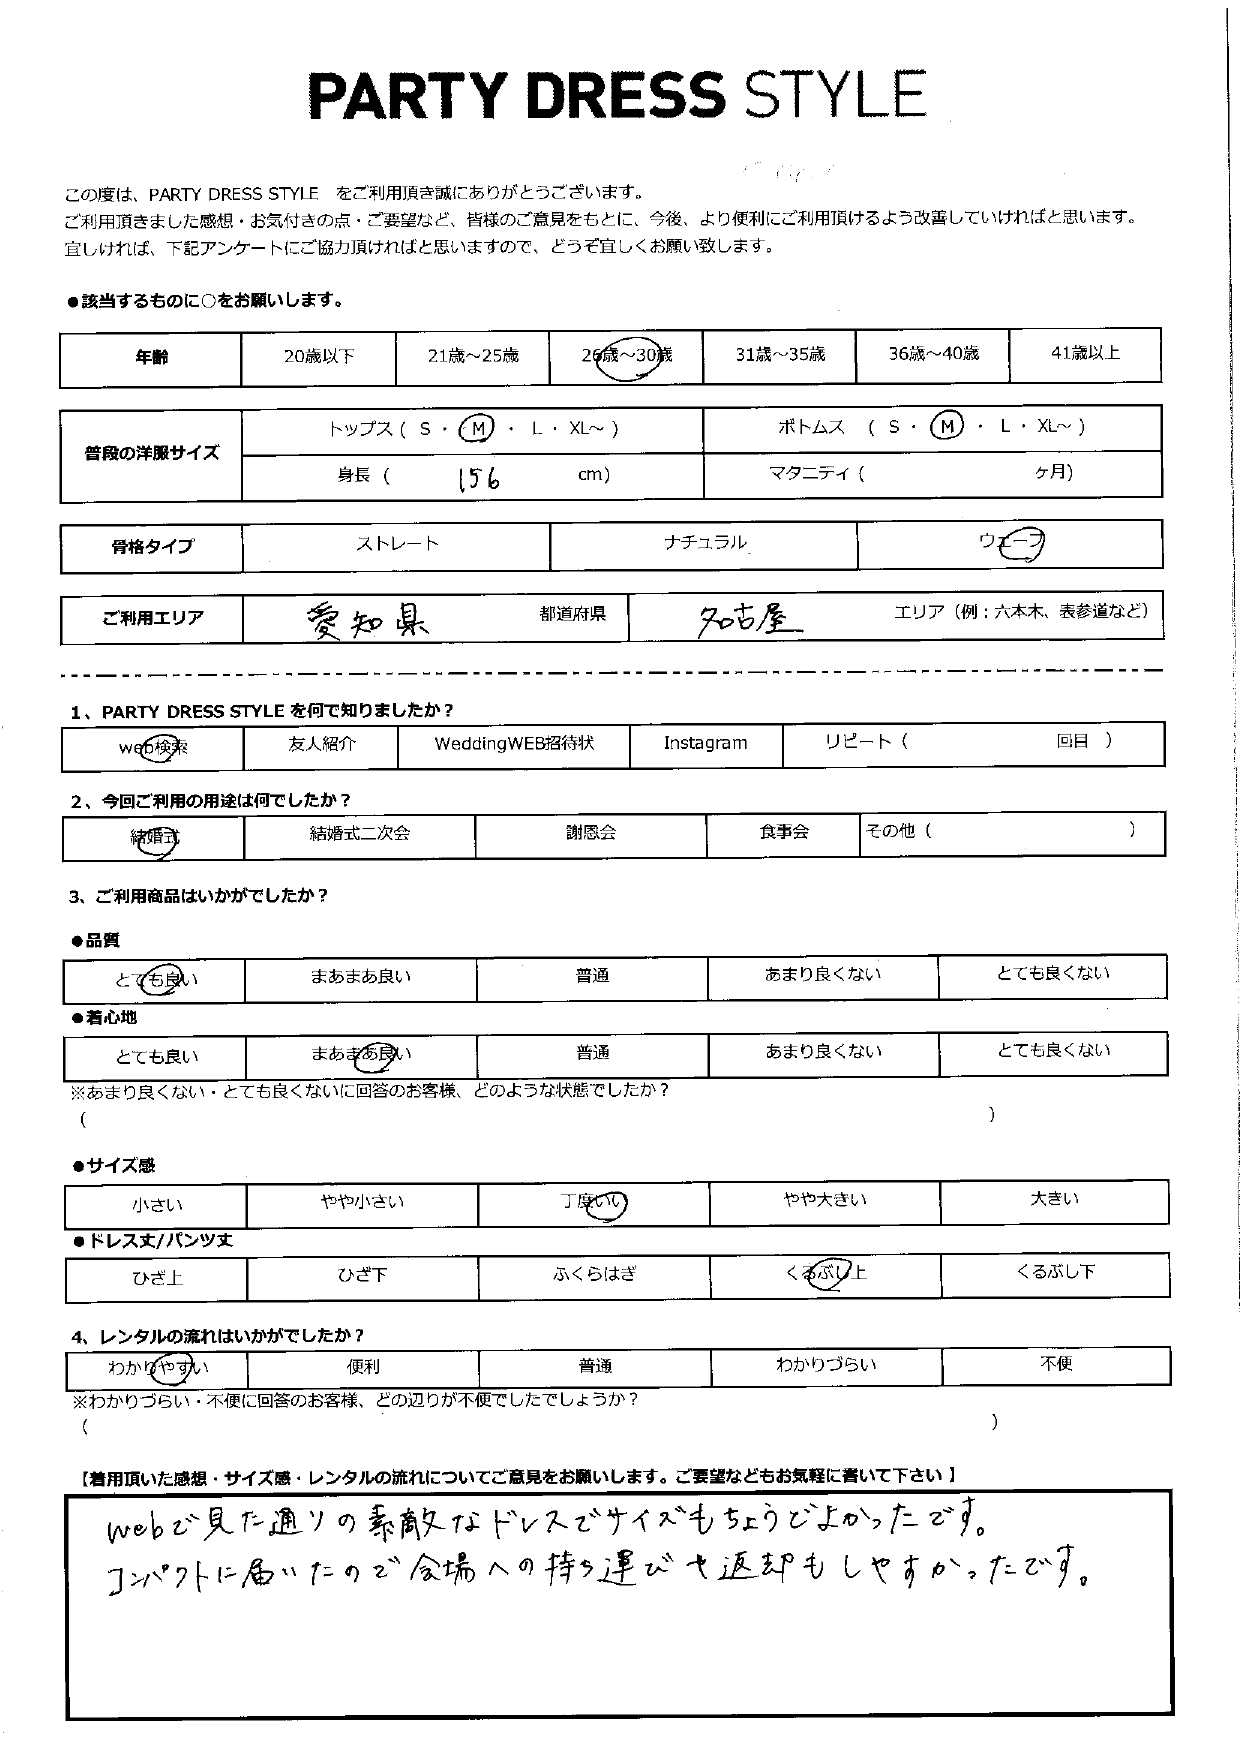 PARTY DRESS STYLE
この度は、PARTY DRESS STYLE をご利用頂き誠にありがとうございます。
ご利用頂きました感想・お気付きの点・ご要望など、皆様のご意見をもとに、今後、より便利にご利用頂けるよう改善していければと思います。
宜しければ、下記アンケートにご協力頂ければと思いますので、どうぞ宜しくお願い致します。
●該当するものに○をお願いします。
年齢 20歳以下 21歳～25歳 26歳～30歳 31歳～35歳 36歳～40歳 41歳以上
普段の洋服サイズ
トップス ( S ・ M ・ L ・ XL～ ) ボトムス ( S ・ M ・ L ・ XL～ )
身長 ( 156 cm) マタニティ ( ヶ月)
骨格タイプ ストレート ナチュラル ウェーブ
ご利用エリア 愛知県 都道府県 名古屋 エリア（例：六本木、表参道など）
1、PARTY DRESS STYLE を何で知りましたか？
web検索 友人紹介 WeddingWEB招待状 Instagram リピート（ 回目 ）
2、今回ご利用の用途は何でしたか？
結婚式 結婚式二次会 謝恩会 食事会 その他（ ）
3、ご利用商品はいかがでしたか？
●品質
とても良い まあまあ良い 普通 あまり良くない とても良くない
●着心地
とても良い まあまあ良い 普通 あまり良くない とても良くない
※あまり良くない・とても良くないに回答のお客様、どのような状態でしたか？
( )
●サイズ感
小さい やや小さい 丁度いい やや大きい 大きい
●ドレス丈/パンツ丈
ひざ上 ひざ下 ふくらはぎ くるぶし上 くるぶし下
4、レンタルの流れはいかがでしたか？
わかりやすい 便利 普通 わかりづらい 不便
※わかりづらい・不便に回答のお客様、どの辺りが不便でしたでしょうか？
( )
【着用頂いた感想・サイズ感・レンタルの流れについてご意見をお願いします。ご要望などもお気軽に書いて下さい】
webで見た通りの素敵なドレスでサイズもちょうどよかったです。
コンパクトに届いたので会場への持ち運びや返却もしやすかったです。